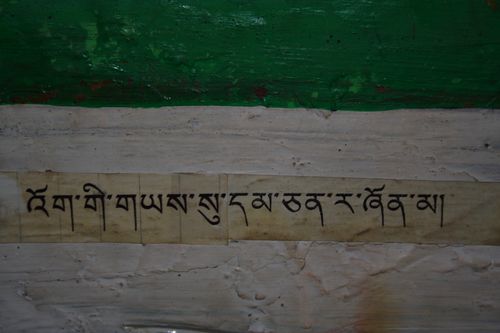 འོག་གི་གཡས་སུ་དམ་ཅན་ར་ཞོན་མ།